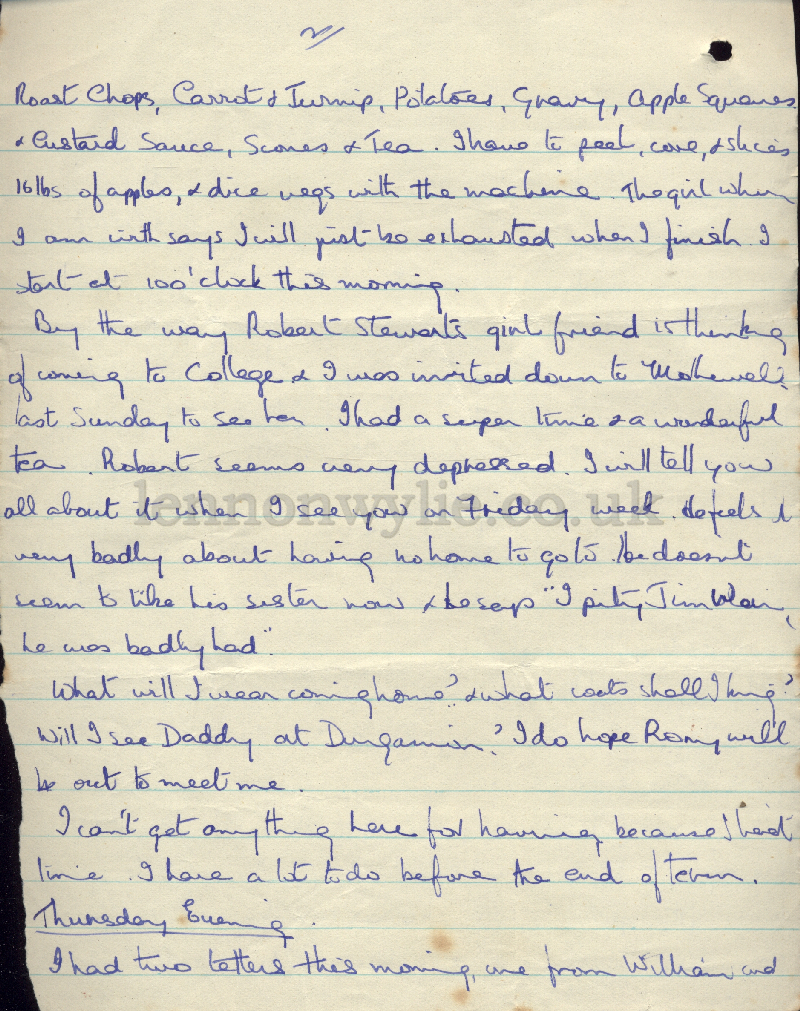 2/
Roast Chops, Carrot & Turnip, Potatoes, Gravy, Apple Squares
& Custard Sauce, Scones & Tea. I have to peel, core, & slices
16 lbs of apples, & dice vegs with the machine. The girl whom
I am with says I will just be exhausted when I finish. I
start at 10 o'clock this morning.
By the way Robert Stewart's girl friend is thinking
of coming to College & I was invited down to Motherwell
last Sunday to see her. I had a super time & a wonderful
tea. Robert seems very depressed. I will tell you
all about it when I see you on Friday week. He feels
very badly about having no home to go to. He doesn't
seem to like his sister now & he says "I pity Jim
he was badly had".
What will I wear coming home? & what coats shall I bring?
Will I see Daddy at Dungannon? I do hope Romy will
be out to meet me.
I can't get anything here for having because I hav't
time. I have a lot to do before the end of term.
Thursday Evening.
I had two letters this morning, one from William and
lennonwylie.co.uk